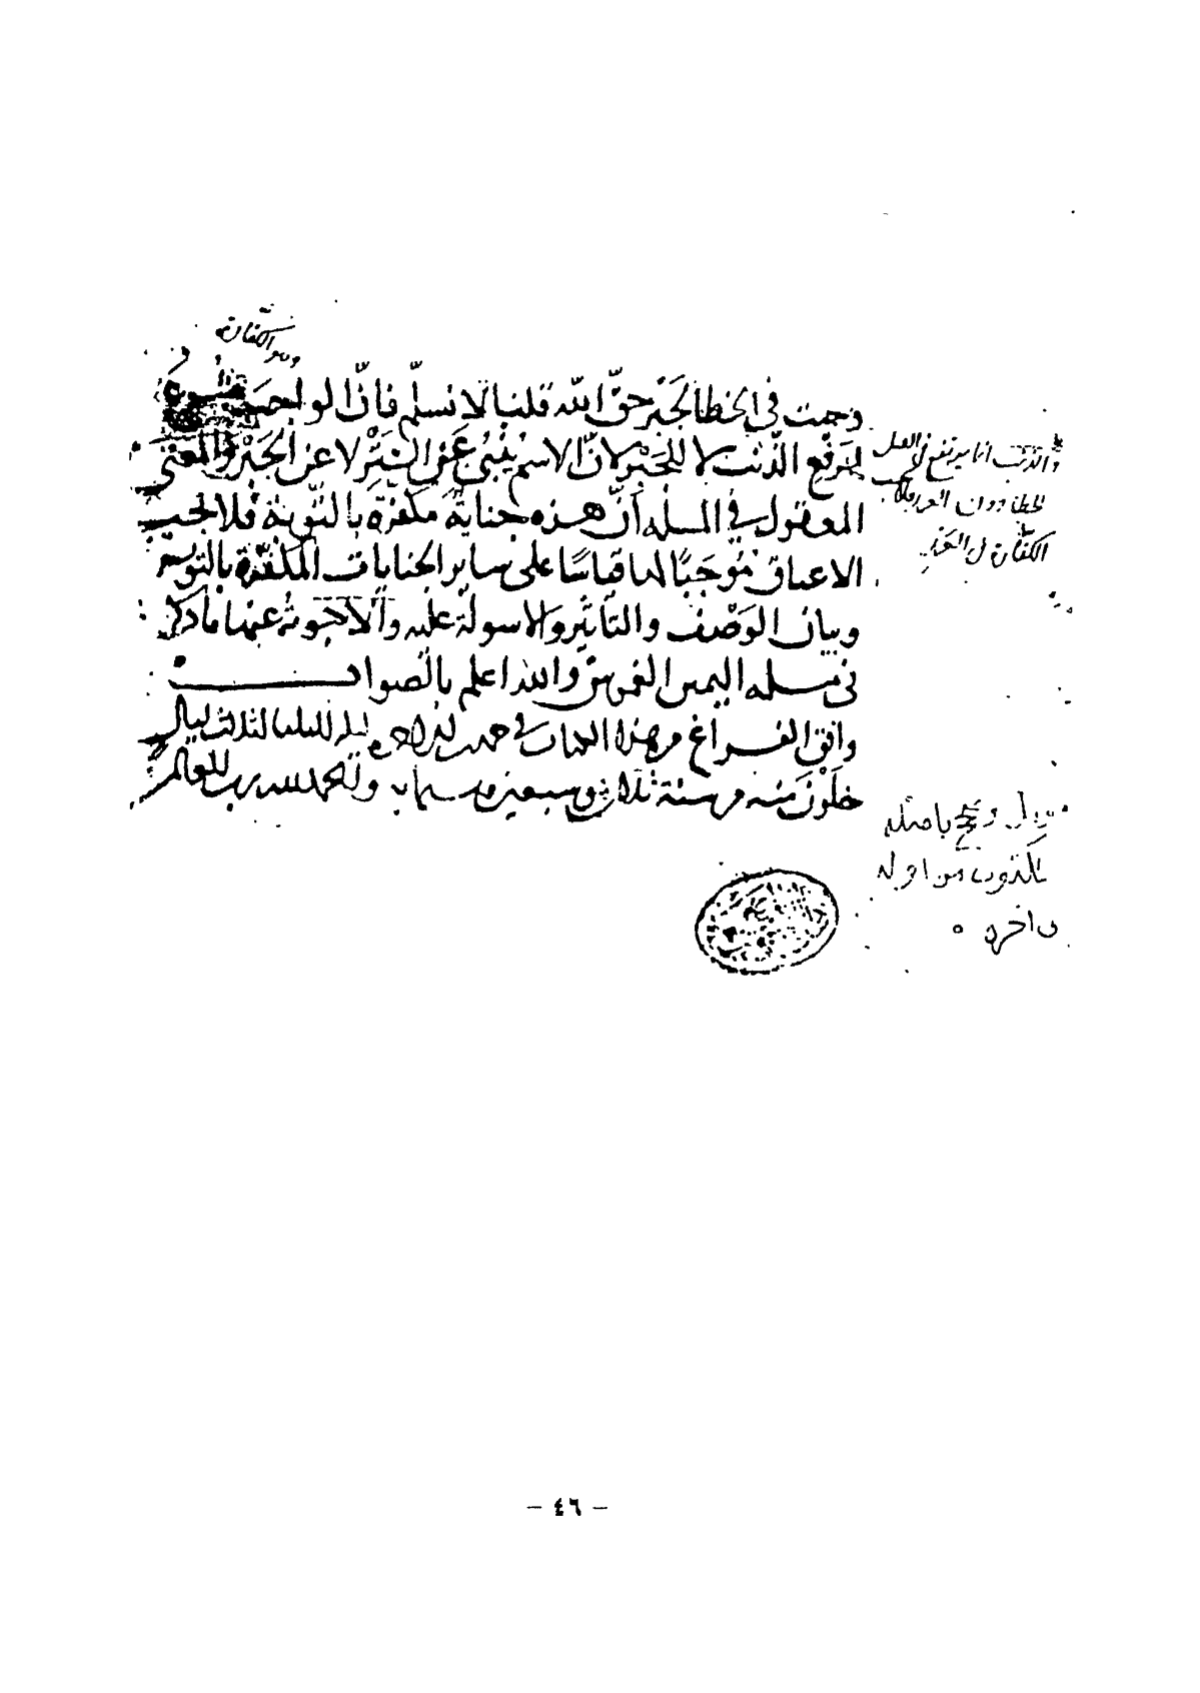 وهو الكفارة
وجبت في الخطا لجبر حق الله قلنا لا نسلم فان الواجب
لرفع الذنب لا للجبر لان الاسم ينبئ عن الستر لا عن الجبر والمعنى
المعقول في المسله أن هذه جناية مكفرة بالتوبة فلا يجب
الاعتاق موجبا لها قياسا على ساير الجنايات المكفرة بالتوبة
وبيان الوصف والتاثير والاسولة عليه والاجوبة عنها ما ذكر
في مسله اليمين الغموس والله اعلم بالصواب
وافق الفراغ من هذا الكتاب في ليله لثلاث ليال
خلون منه من سنة ثلاث وسبعين و والحمد لله رب العالمين
والذنب انما يرتفع
الخطا دون العمد
الكفارة في العمد
باصله
المكتوب من اوله
الى اخره
- ٤٦ -